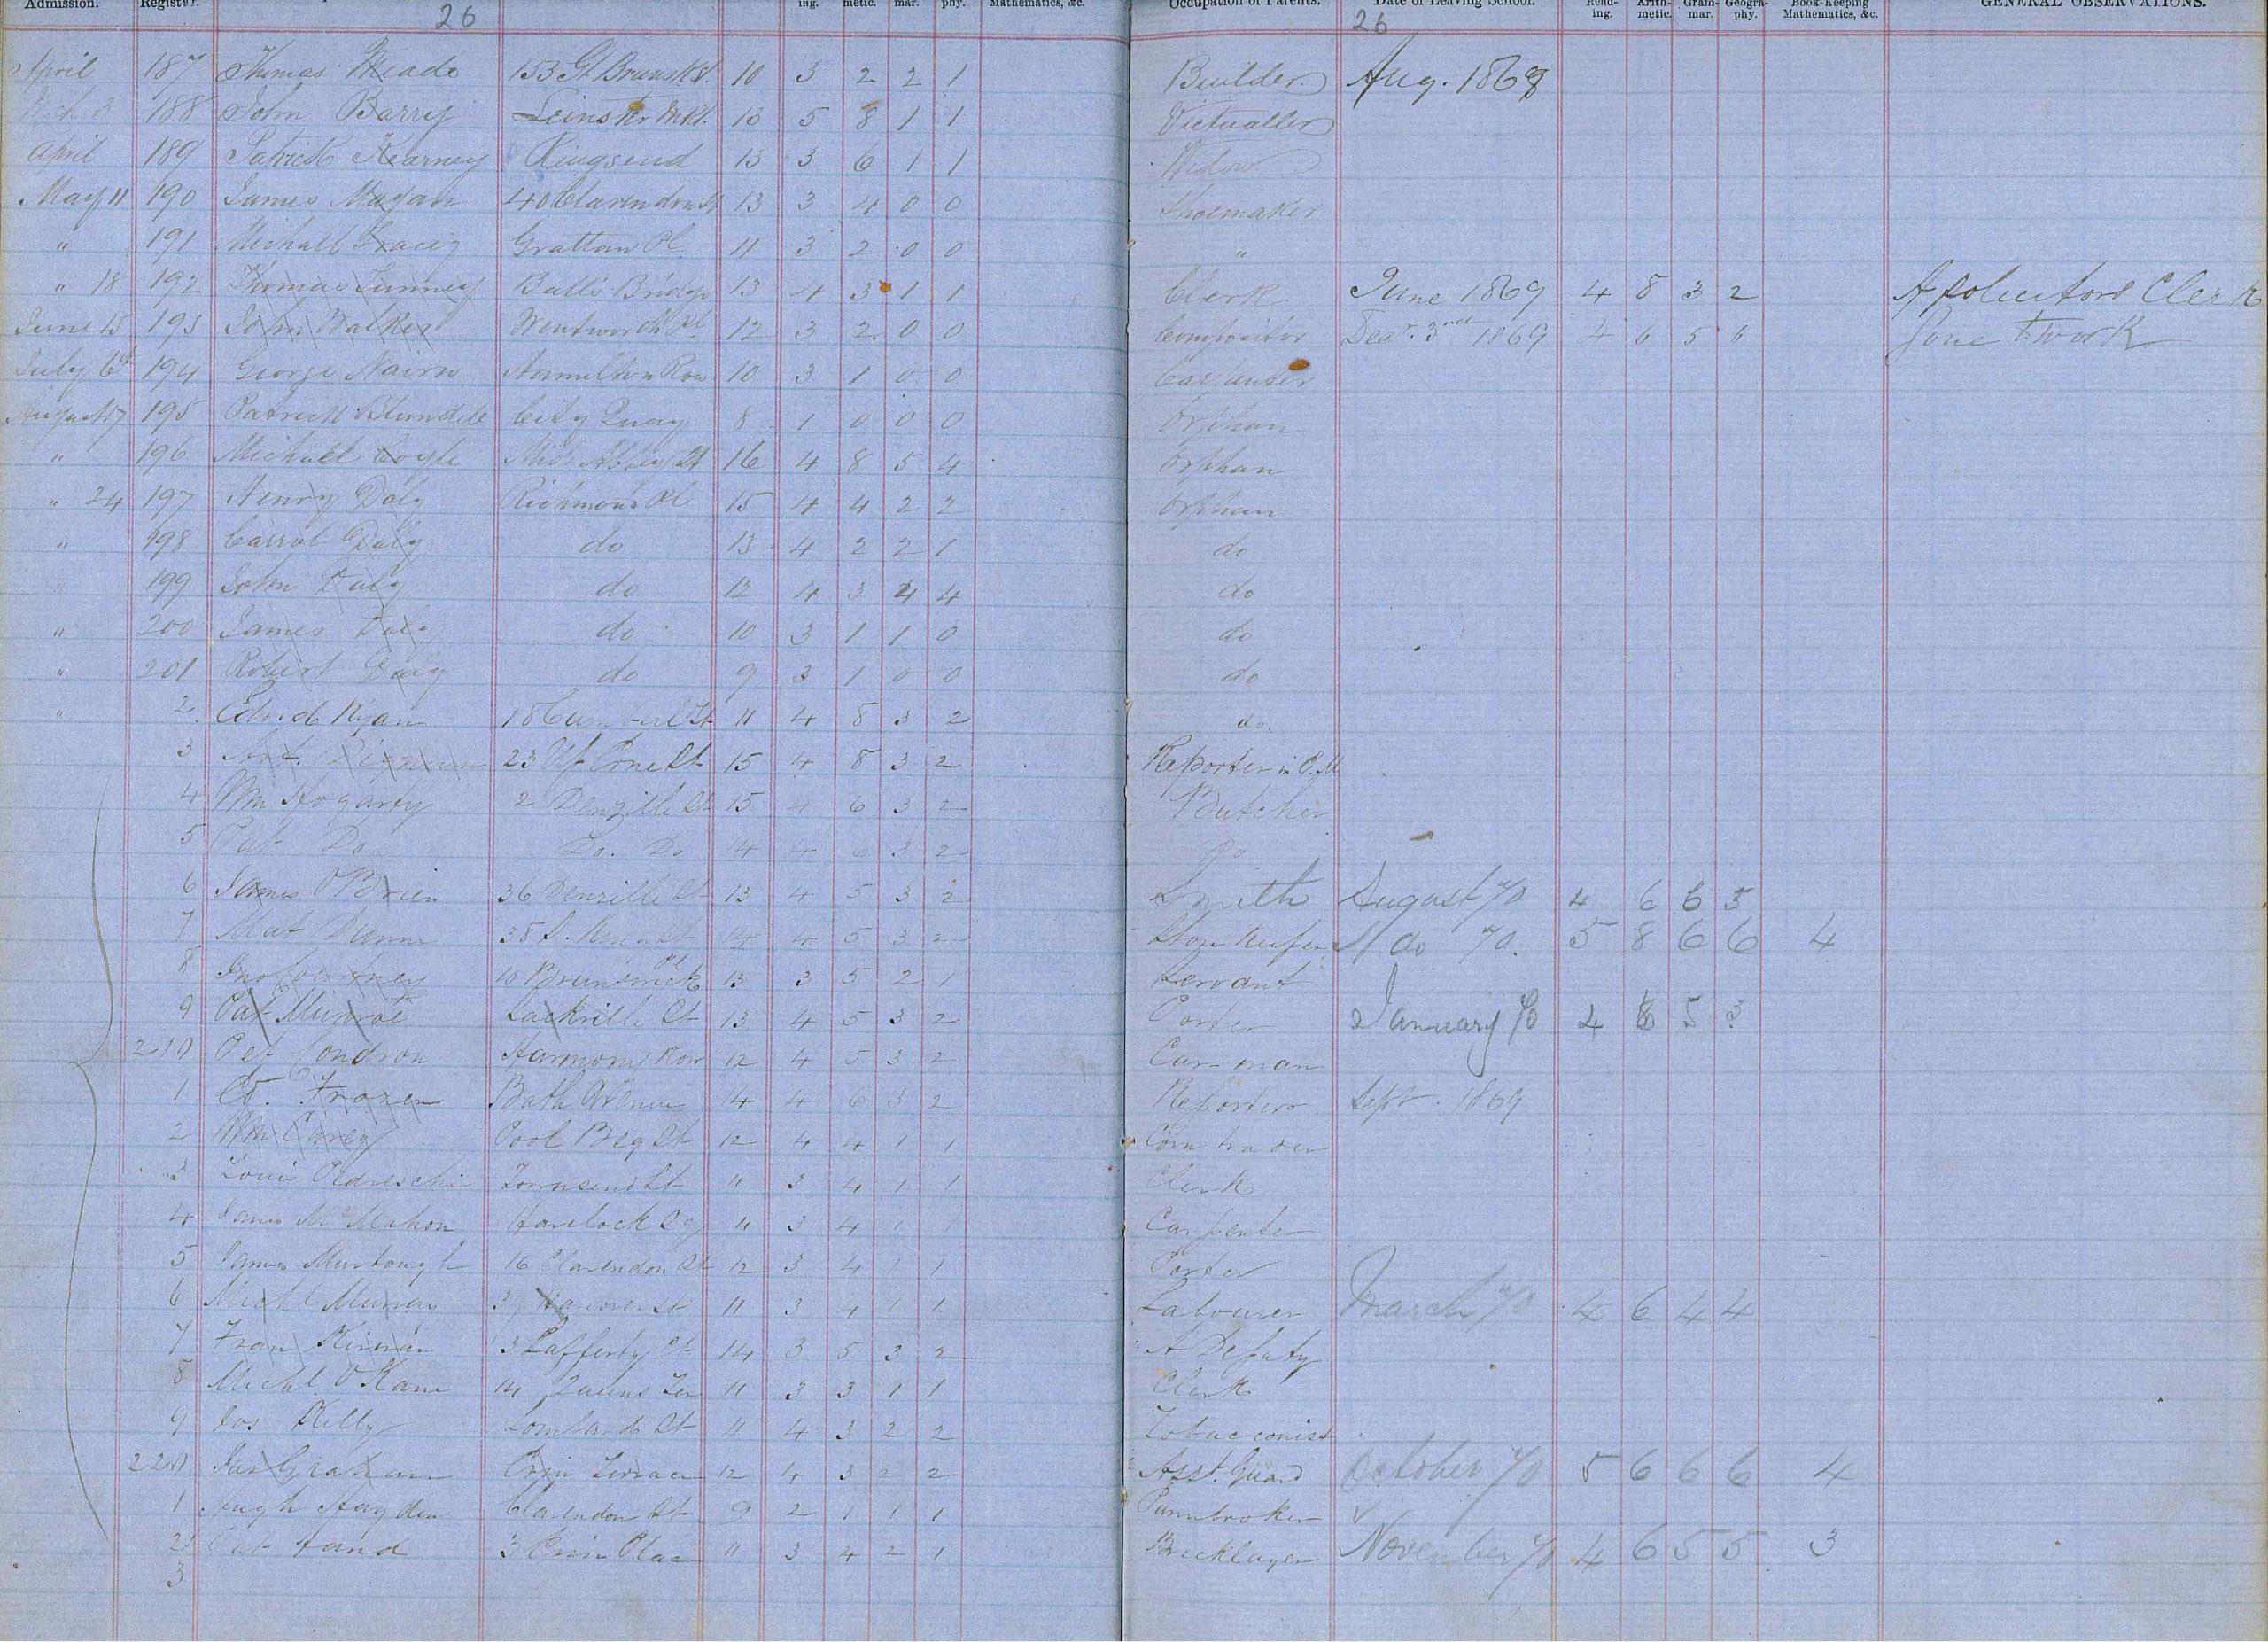 Admission. Register. ing. metic. mar. phy. Mathematics, &c. Occupation of Parents. Date of Leaving School. Read-ing. Arith-metic. Gram-mar. Geogra-phy. Book-Keeping Mathematics, &c. GENERAL OBSERVATIONS.
26 26
April 187 Thomas Meade 153 Gt Brunsk St. 10 3 2 2 1 Builder Aug. 1869
188 John Barry Leinster Mkt. 13 5 8 1 1 Victualler
April 189 Patrick Kearney Ringsend 13 3 6 1 1 Widow
May 11 190 James Magan 40 Clarendon St 13 3 4 0 0 Shoemaker
" 191 Michall Gracey Grattan Pl 11 3 2 0 0 "
" 18 192 Thomas Tunney Balls Bridge 13 4 3 1 1 Clerk June 1869 4 8 3 2 A Solicitors Clerk
June 15 193 John Walker Wentworth Pl. 12 3 2 0 0 Compositor Decr. 3rd 1869 4 6 5 6 Gone to work
July 6th 194 George Nairn Hamilton Row 10 3 1 0 0 Carpenter
August 17 195 Patrick Blundell City Quay 8 1 0 0 0 Orphan
" 196 Michall Coyle Mid Abbey St 16 4 8 5 4 Orphan
" 24 197 Henry Daly Richmond Pl 15 4 4 2 2 Orphan
" 198 Carrol Daly do 13 4 2 2 1 do
" 199 John Daly do 12 4 3 4 4 do
" 200 James Daly do 10 3 1 1 0 do
" 201 Robert Daly do 9 3 1 0 0 do
" 2 Edwd Ryan 18 Cumberl St 11 4 8 3 2 do.
3 23 Up Erne St 15 4 8 3 2 Reporter in
4 Wm Hogarty 2 Denzille St 15 4 6 3 2 Butcher
5 Pat Do Do. Do 14 4 6 3 2 Do
6 James O'Brien 36 Denzille St 13 4 5 3 2 Smith August 70 4 6 6 5
7 Mat Dunne 38 S. King St 14 4 5 3 2 Store Keeper do 70. 5 8 6 6 4
8 Jno Courtney 10 Brunswick Pl 13 3 5 2 1 Servant
9 Pat Munroe Sackville St 13 4 5 3 2 Porter January 70 4 6 5 3
210 Pet Condron Harmony Row 12 4 5 3 2 Car-man
1 Ed. Frazer Bath Avenue 14 4 6 3 2 Reporter Sept. 1869
2 Wm Carey Pool Beg St 12 4 4 1 1 Corn trader
3 Louis Pedreschi Townsend St 11 3 4 1 1 Clerk
4 James McMahon Havelock Sq 11 3 4 1 1 Carpenter
5 James Murtough 16 Clarendon St 12 3 4 1 1 Porter
6 Michl Murray 39 Hanover St 11 3 4 1 1 Labourer March 70 4 6 4 4
7 Fran Kirwan 3 Lafferty Ct 14 3 5 3 2 A Deputy
8 Michl. O'Kane 14 Queens Ter 11 3 3 1 1 Clerk
9 Jos Kelly Lombard St 11 4 3 2 2 Tobacconist
220 Jas Graham Erin Terrace 12 4 3 2 2 Asst. Guard October 70 5 6 6 6 4
1 Hugh Hayden Clarendon St 9 2 1 1 1 Pawnbroker
2 Pat Hand 3 Erin Place 11 3 4 2 1 Bricklayer November 70 4 6 5 5 3
3